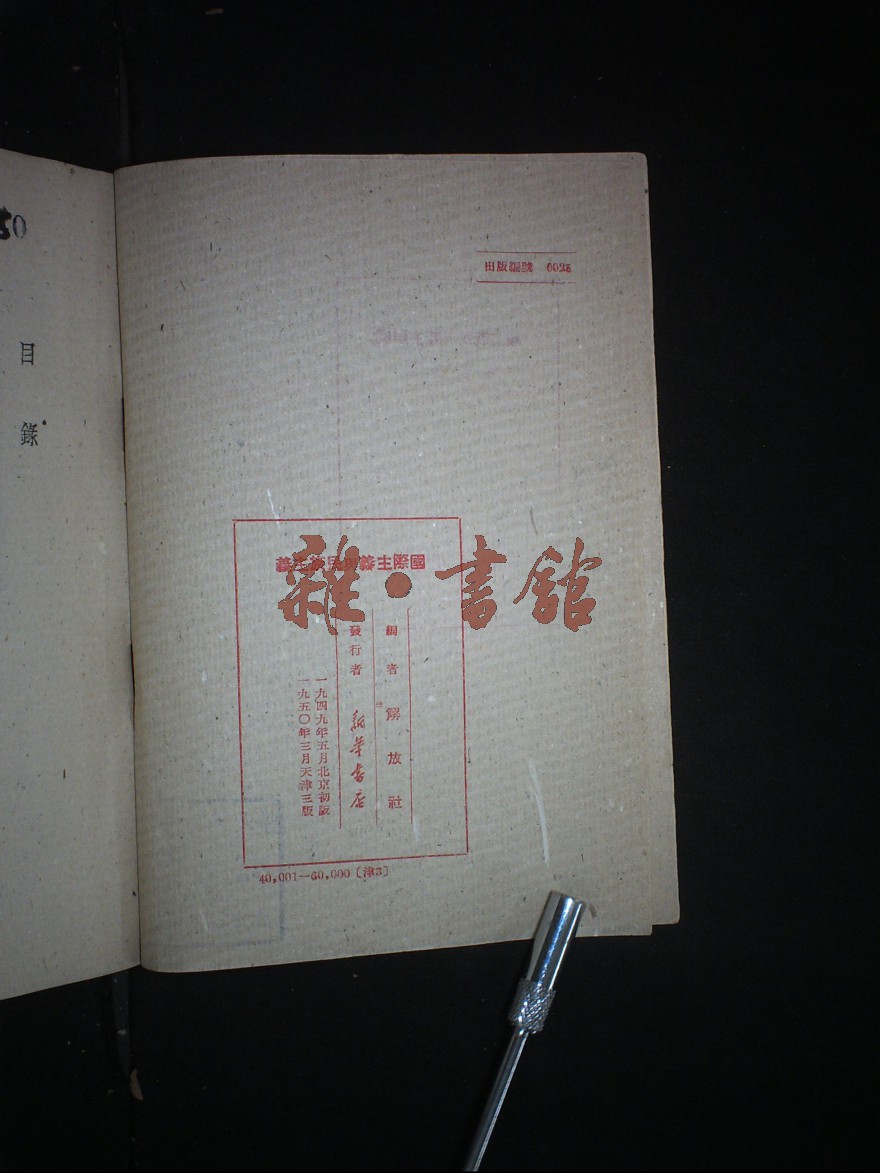 50
目錄
出版編號 6025
國際主義與民族主義
編者 解放社
發行者 新華書店
一九四九年五月北京初版
一九五〇年三月天津三版
40,001—60,000〔津3〕
雜·書館